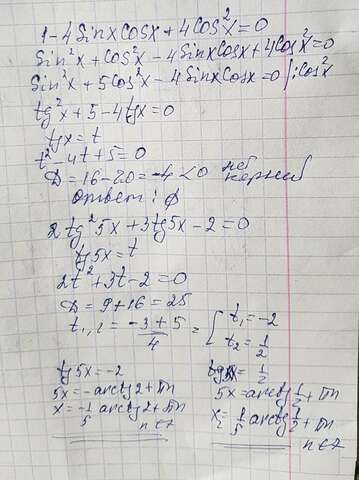 1-4sinxcosx+4cos²x=0
sin²x+cos²x-4sinxcosx+4cos²x=0
sin²x+5cos²x-4sinxcosx=0 |:cos²x
tg²x+5-4tgx=0
tgx=t
t²-4t+5=0
D=16-20=-4<0 нет корней
ответ: ∅
2tg²5x+3tg5x-2=0
tg5x=t
2t²+3t-2=0
D=9+16=25
t₁,₂=(-3±5)/4= [t₁=-2
t₂=1/2
tg5x=-2
5x=-arctg2+πn
x=-1/5 arctg2+πn
n∈Z
tg5x=1/2
5x=arctg1/2+πn
x=1/5 arctg1/2+πn
n∈Z